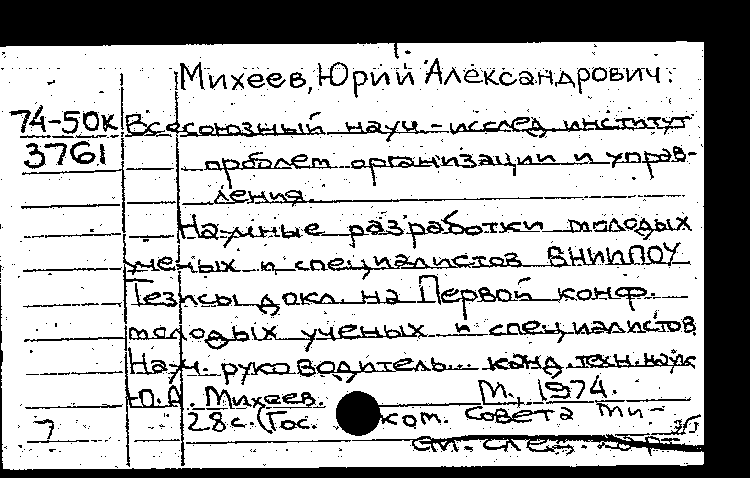 1.
Михеев, Юрий Александрович.
74-50к
3761
Всесоюзный науч.-исслед. институт
проблем организации и управ-
ления.
Научные разработки молодых
ученых и специалистов ВНИИПОУ
Тезисы докл. на Первой конф.
молодых ученых и специалистов
Науч. руководитель... канд. техн. наук
Ю.А. Михеев. М., 1974.
28с. (Гос. ком. Совета Ми-
7
см. след. карт